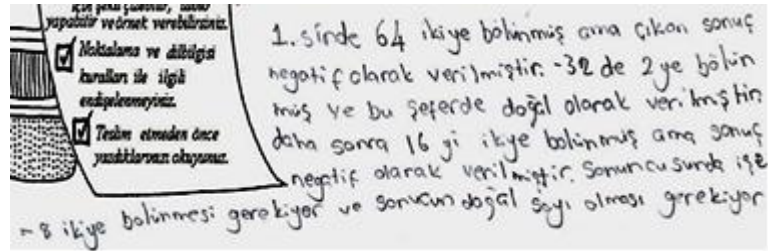 için şekil çizebilir, tablo
yapabilir ve örnek verebilirsiniz.
Noktalama ve dilbilgisi
kuralları ile ilgili
endişelenmeyiniz.
Teslim etmeden önce
yazdıklarınızı okuyunuz.
1. sinde 64 ikiye bölünmüş ama çıkan sonuç
negatif olarak verilmiştir. -32 de 2 ye bölün
müş ve bu seferde doğal olarak verilmştir.
daha sonra 16 yi ikiye bolunmuş ama sonuç
negatif olarak verilmiştir. Sonuncusunda ise
-8 ikiye bolinmesi gerekiyor ve sonucun doğal sayı olması gerekiyor